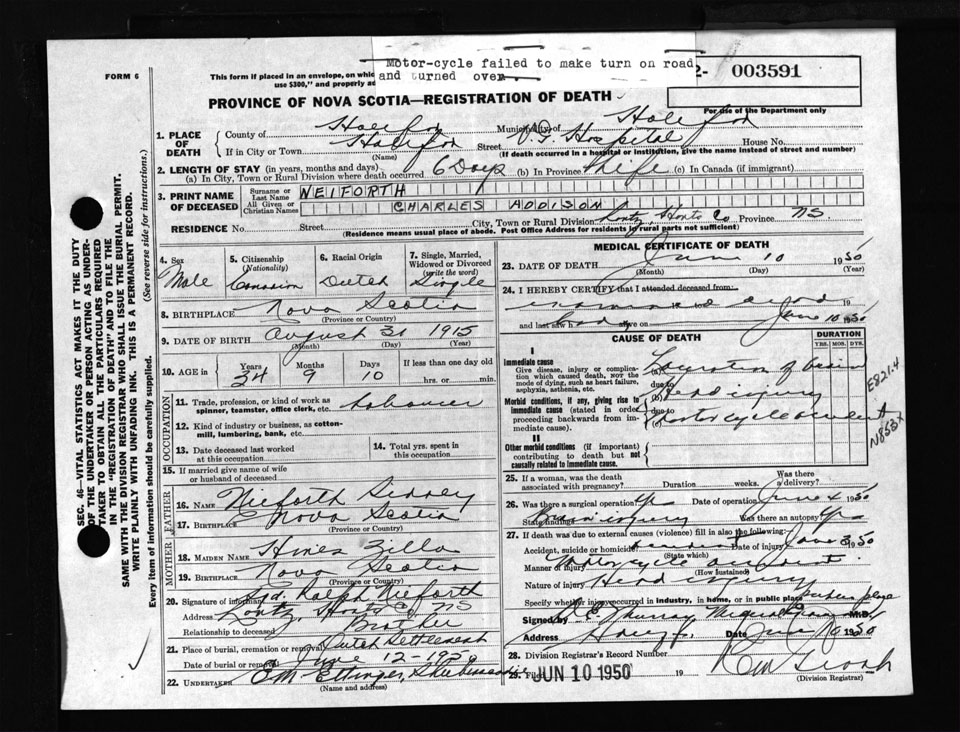 Motor-cycle failed to make turn on road
and turned over.
FORM 6
This form if placed in an envelope, on whic
use $300," and properly ad
2- 003591
PROVINCE OF NOVA SCOTIA—REGISTRATION OF DEATH
For use of the Department only
1. PLACE OF DEATH
County of Halifax
Municipality of Halifax
If in City or Town Halifax
(Name)
Street V.G. Hospital House No.
(If death occurred in a hospital or institution, give the name instead of street and number)
2. LENGTH OF STAY (in years, months and days)
(a) In City, Town or Rural Division where death occurred 6 Days (b) In Province Life (c) In Canada (if immigrant)
3. PRINT NAME OF DECEASED
Surname or Last Name NEIFORTH
All Given or Christian Names CHARLES ADDISON
RESIDENCE No. Street City, Town or Rural Division Lantz, Hants Co Province NS
(Residence means usual place of abode. Post Office Address for residents in rural parts not sufficient)
4. Sex Male
5. Citizenship (Nationality) Canadian
6. Racial Origin Dutch
7. Single, Married, Widowed or Divorced (write the word) Single
8. BIRTHPLACE Nova Scotia
(Province or Country)
9. DATE OF BIRTH August 31 1915
(Month) (Day) (Year)
10. AGE in Years 34 Months 9 Days 10 If less than one day old
hrs. or min.
OCCUPATION
11. Trade, profession, or kind of work as spinner, teamster, office clerk, etc. Labourer
12. Kind of industry or business, as cotton-mill, lumbering, bank, etc.
13. Date deceased last worked at this occupation
14. Total yrs. spent in this occupation
15. If married give name of wife or husband of deceased
FATHER
16. NAME Nieforth Sidney
17. BIRTHPLACE Nova Scotia
(Province or Country)
MOTHER
18. MAIDEN NAME Hines Zilla
19. BIRTHPLACE Nova Scotia
(Province or Country)
20. Signature of informant Sgd. Ralph Nieforth
Address Lantz, Hants Co NS
Relationship to deceased Brother
21. Place of burial, cremation or removal Dutch Settlement
Date of burial or removal June 12-1950
22. UNDERTAKER E M Ettinger, Shubenacadie
(Name and address)
MEDICAL CERTIFICATE OF DEATH
23. DATE OF DEATH June 10 1950
(Month) (Day) (Year)
24. I HEREBY CERTIFY that I attended deceased from
19
and last saw h alive on June 10 1950
CAUSE OF DEATH
DURATION
YRS. MOS. DYS.
I
Immediate cause
Give disease, injury or complication which caused death, not the mode of dying, such as heart failure, asphyxia, asthenia, etc.
(a) Laceration of brain
due to
Morbid conditions, if any, giving rise to immediate cause (stated in order proceeding backwards from immediate cause).
(b) Head injury
due to
(c) Motorcycle accident
E821.4
N853
II
Other morbid conditions (if important) contributing to death but not causally related to immediate cause.
25. If a woman, was the death associated with pregnancy? Duration weeks. Was there a delivery?
26. Was there a surgical operation? Yes Date of operation June 4 1950
State findings Brain injury Was there an autopsy? Yes
27. If death was due to external causes (violence) fill in also the following:
Accident, suicide or homicide? Accident Date of injury June 3 1950
(State which)
Manner of injury Motorcycle accident
(How sustained)
Nature of injury Head injury
Specify whether injury occurred in industry, in home, or in public place public place
Signed by M.D.
Address Date June 10 1950
28. Division Registrar's Record Number
29. Filed JUN 10 1950 19
(Division Registrar)
SEC. 46—VITAL STATISTICS ACT MAKES IT THE DUTY
OF THE UNDERTAKER OR PERSON ACTING AS UNDER-
TAKER TO OBTAIN ALL THE PARTICULARS REQUIRED
IN THE "REGISTRATION OF DEATH" AND TO FILE THE
SAME WITH THE DIVISION REGISTRAR WHO SHALL ISSUE THE BURIAL PERMIT.
WRITE PLAINLY WITH UNFADING INK. THIS IS A PERMANENT RECORD.
Every item of information should be carefully supplied. (See reverse side for instructions.)